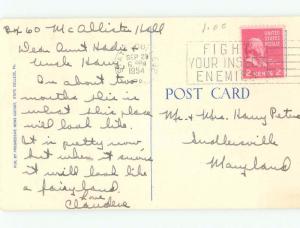 Bx 60 McAllister Hall
Dear Aunt Hadie &
Uncle Harry
In about two
months this is
what this place
will look like.
It is pretty now
but when it snows
it will look like
a fairyland.
Love
Claudia
1.00
SEP 29
1954
FIGHT
YOUR INS
ENEMIE
2 CENTS 2
POST CARD
Mr. & Mrs. Harry Peters
Maryland